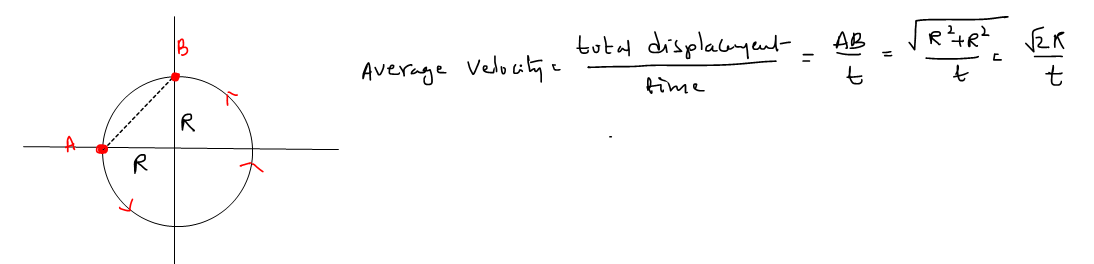 B
R
A
R
Average velocity = total displacement / time = AB / t = √(R²+R²) / t = √2R / t